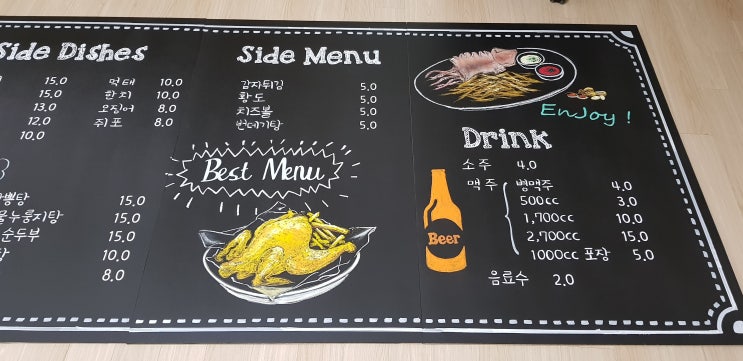 Side Dishes
15.0
15.0
13.0
12.0
10.0
먹태 10.0
한치 10.0
오징어 8.0
쥐포 8.0
뽕탕 15.0
누룽지탕 15.0
순두부 15.0
탕 10.0
8.0
Side Menu
감자튀김 5.0
황도 5.0
치즈볼 5.0
번데기탕 5.0
Best Menu
Enjoy !
Drink
소주 4.0
맥주 병맥주 4.0
500cc 3.0
1,700cc 10.0
2,700cc 15.0
1000cc 포장 5.0
음료수 2.0
Beer